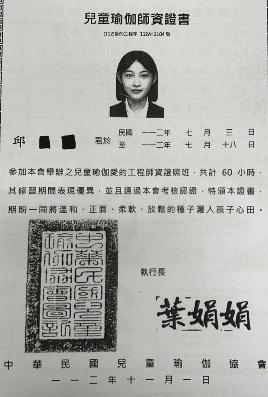 兒童瑜伽師資證書
邱 君於
民國 一一二年 七月 三日
至 一一二年 七月 十八日
參加本會舉辦之兒童瑜伽愛的工程師資證照班，共計 60 小時，
其修習期間表現優異，並且通過本會考核認證，特頒本證書，
期盼一同將溫和、正面、柔軟、放鬆的種子灑入孩子心田。
執行長
葉娟娟
中華民國兒童瑜伽協會
一一二年十一月一日